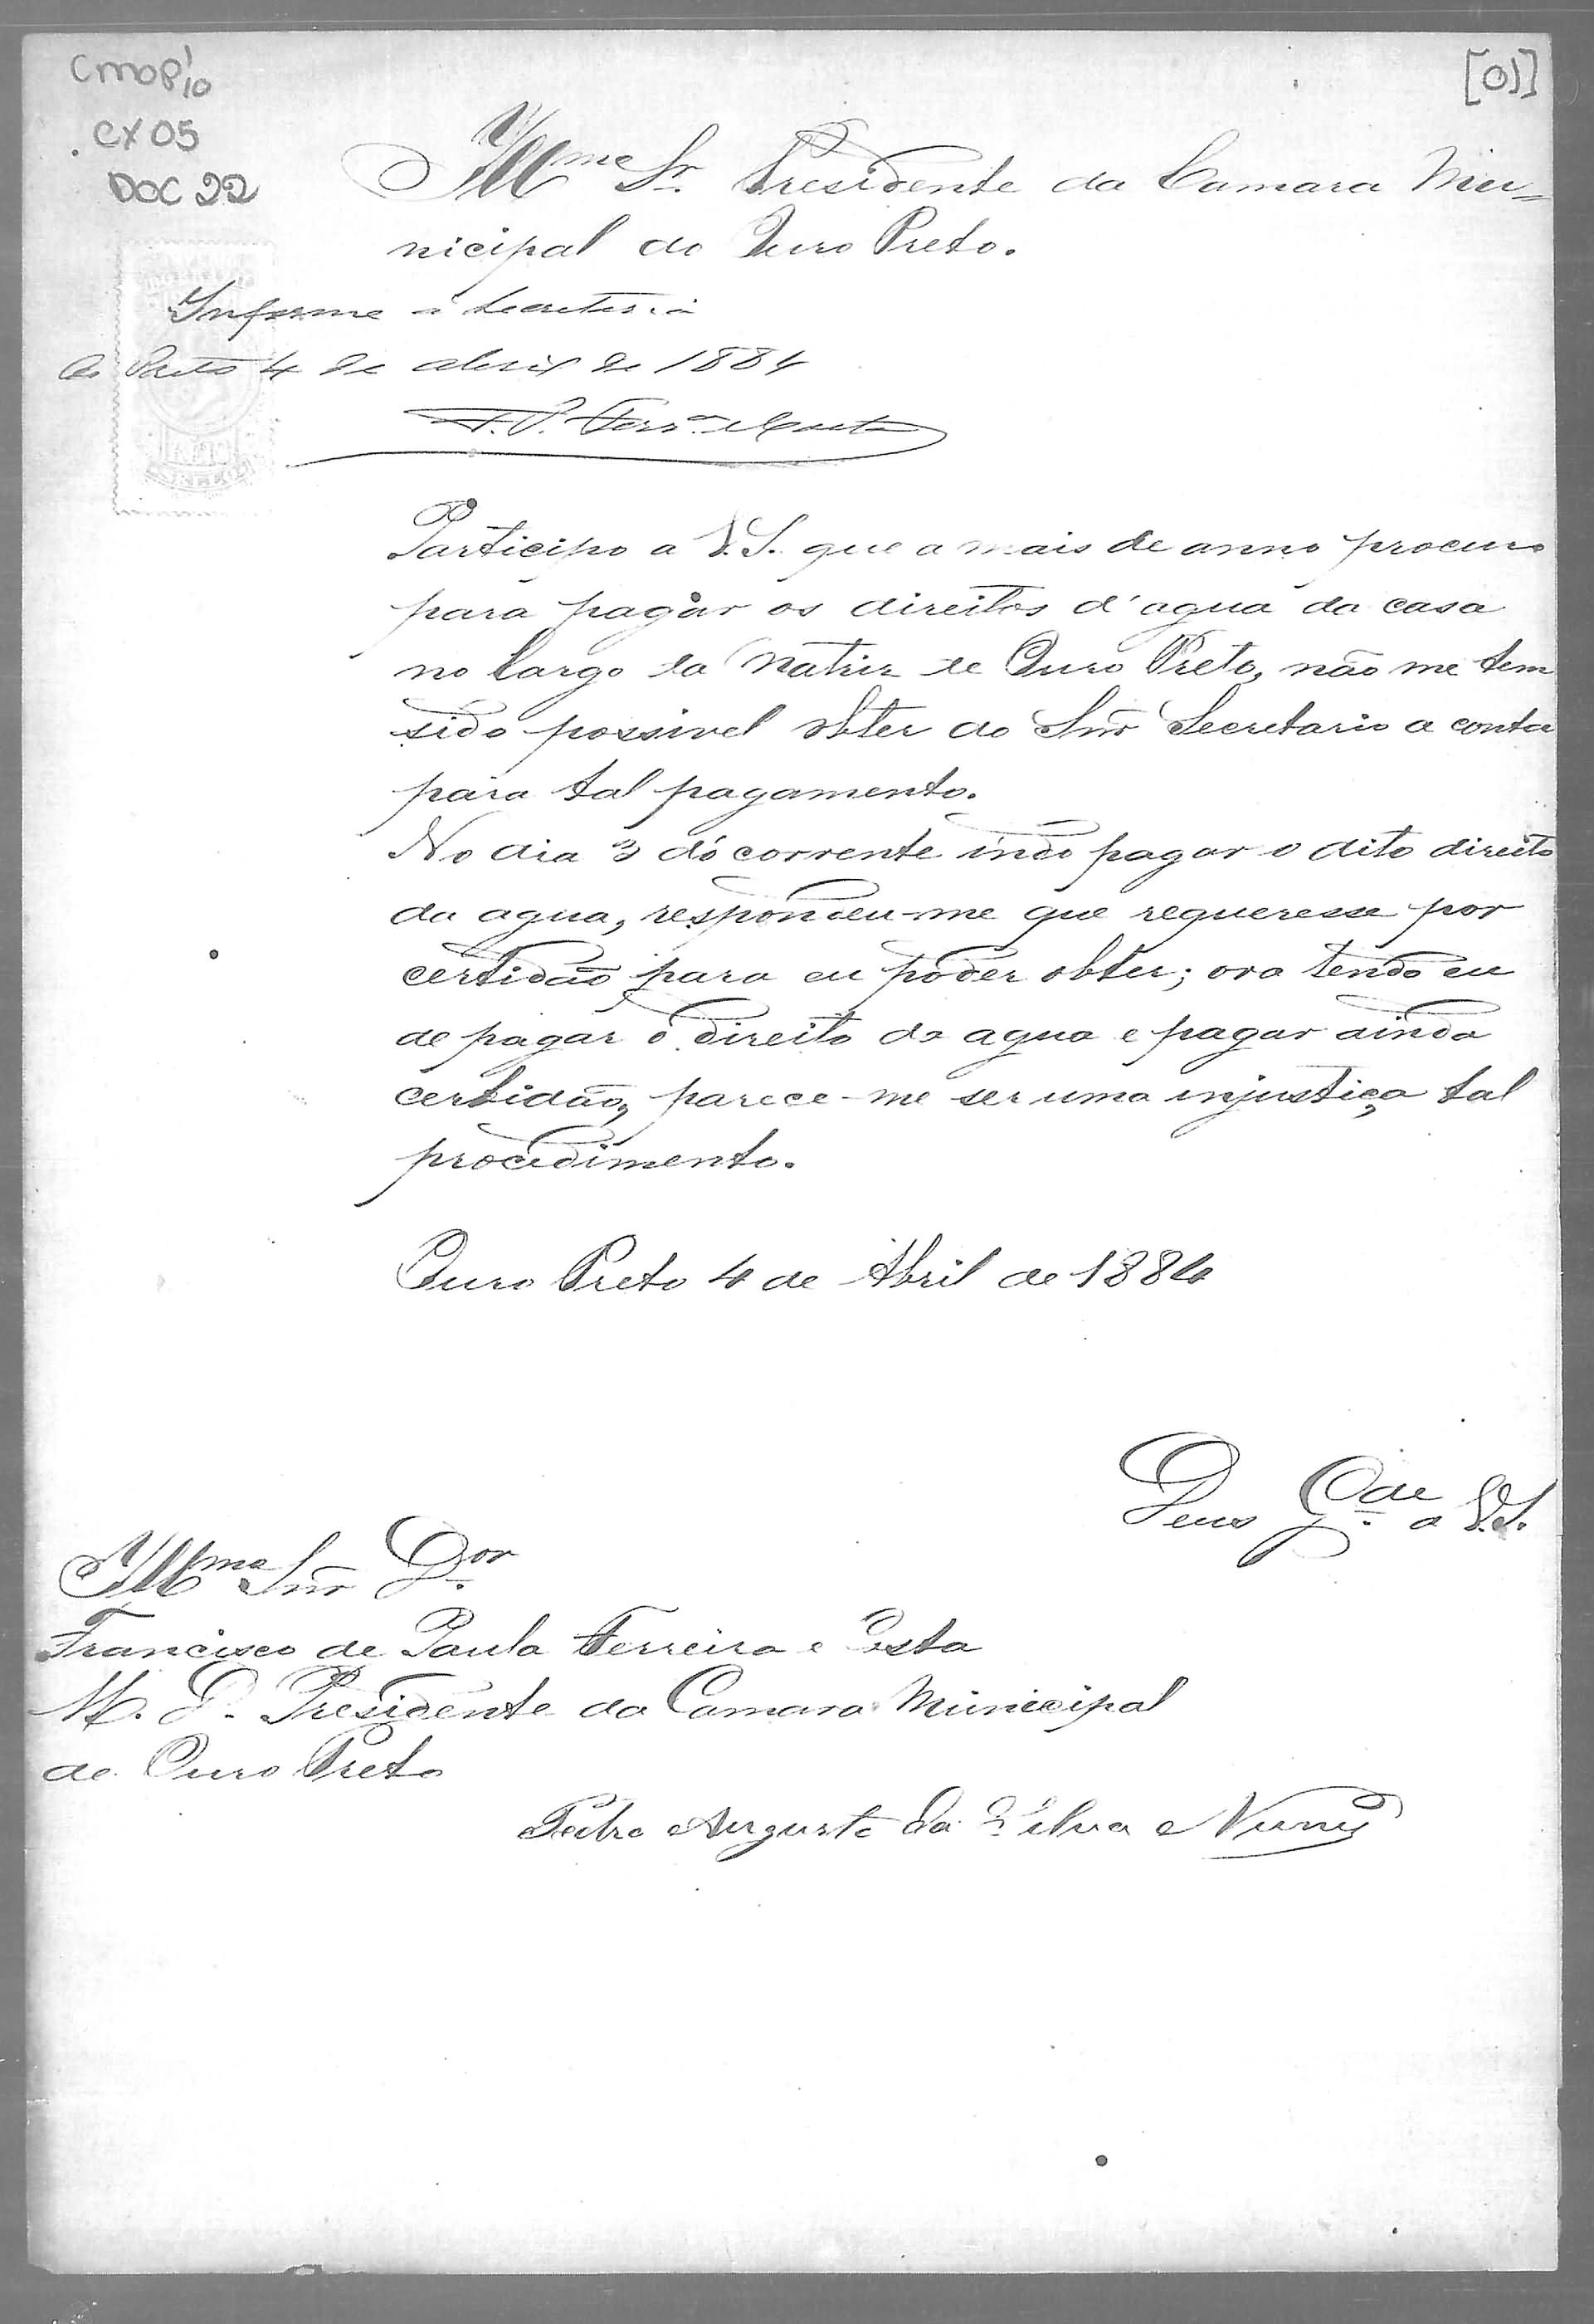 CMOP/10
CX 05
DOC 22
[01]
Illmo Sr. Presidente da Camara Mu=
nicipal do Ouro Preto.
Informe a Secretaria
O. Preto 4 de abril de 1884
F. P. Ferra e Costa
Participo a V. S. que a mais de anno procuro
para pagar os direitos d'agua da casa
no largo da Matriz de Ouro Preto, não me tem
sido possivel obter do Snr Secretario a conta
para tal pagamento.
No dia 3 do corrente indo pagar o dito direito
da agua, respondeu-me que requeresse por
certidão para eu poder obter; ora tendo eu
de pagar o direito da agua e pagar ainda
certidão, parece-me ser uma injustiça tal
procedimento.
Ouro Preto 4 de Abril de 1884
Deus Gde a V.S.
Illmo Snr Dor
Francisco de Paula Ferreira e Costa
M. D. Presidente da Camara Municipal
de Ouro Preto
Pedro Augusto da Silva e Nunes